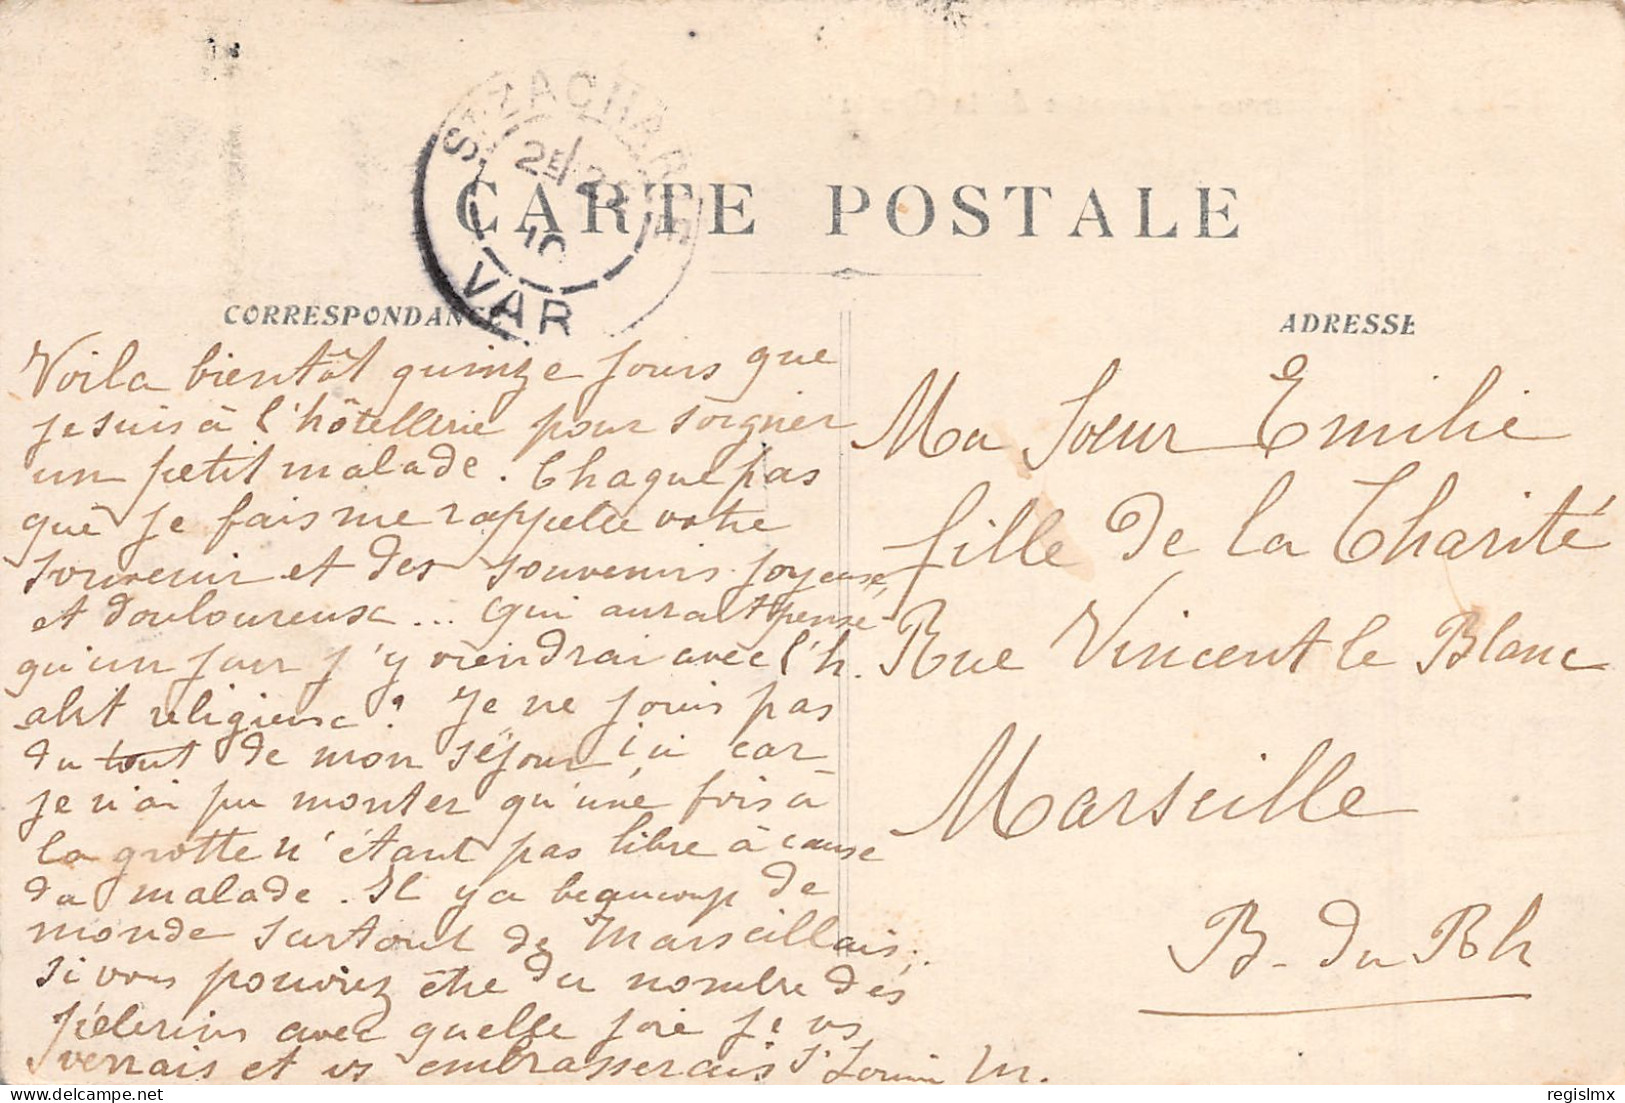 ST ZACHARIE
25
10
VAR
CARTE POSTALE
CORRESPONDANCE
Voila bientôt quinze jours que
je suis à l'hôtellerie pour soigner
un petit malade. Chaque pas
que je fais me rappelle votre
souvenir et des souvenirs joyeuse,
et douloureuse... qui aurait pensé
qu'un jour j'y viendrai avec l'h.
abit religieuse? Je ne jouis pas
du tout de mon séjour ici car
je n'ai pu monter qu'une fois à
la grotte n'étant pas libre à cause
du malade. Il y a beaucoup de
monde surtout des Marseillais.
Si vous pouviez être du nombre des
pélerins avec quelle joie je vs
verrais et vs embrasserais Sr M.
ADRESSE
Ma Soeur Emilie
fille de la Charité
Rue Vincent le Blanc
Marseille
B. du Rh
delcampe.net
regislmx